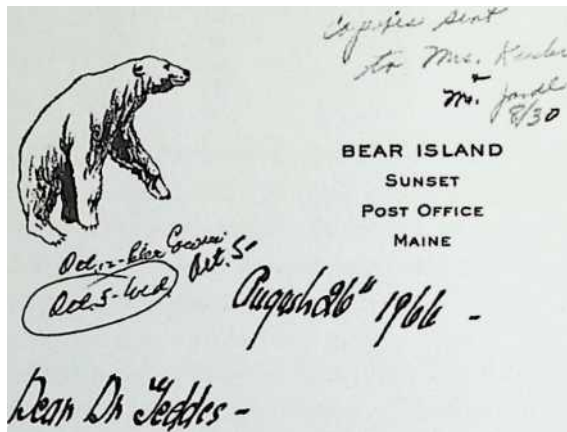 Copies sent
to Mrs.
Mr.
8/30
BEAR ISLAND
SUNSET
POST OFFICE
MAINE
Oct. 12-
Oct. 5-
Oct. 5- Wed.
August 26" 1966 -
Dear Dr Geddes -